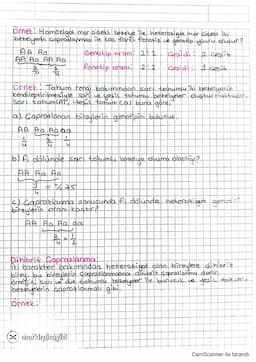 Örnek: Homozigot mor çiçekli bezelye ile heterozigot mor çiçekli
bezelyenin çaprazlanması ile kaç farklı fenotip ve genotip oluşur?
AA Aa Genotip oranı: 1:1 Çeşidi: 2 çeşit
AA Aa AA Aa Fenotip oranı: Çeşidi: 1 çeşit
Örnek: Tohum rengi bakımından sarı tohumlu bezelyenin
kendileştirilmesiyle sarı ve yeşil tohumlu bezelyeler oluşmaktadır.
Sarı tohum(A), Yeşil tohum (a) buna göre;
a) Çaprazlanan bireylerin genotipini bulunuz.
AA Aa Aa aa
b) F₁ dölünde sarı tohumlu bezelye oluşma olasılığı?
AA Aa Aa
3/4 = %75
c) Çaprazlama sonucunda F₁ dölünde heterozigot
bireylerin oranı kaçtır?
AA Aa Aa aa
2/4 = 1/2
Dihibrit Çaprazlama
İki karakter bakımından heterozigot olan bireylere dihibrit
birey, bu bireylerin çaprazlanmasına dihibrit çaprazlama denir.
sarı ve düz tohumlu bezelyeler ile buruşuk ve yeşil
bezelyelerin çaprazlanması gibi.
Örnek:
CamScanner ile tarandı